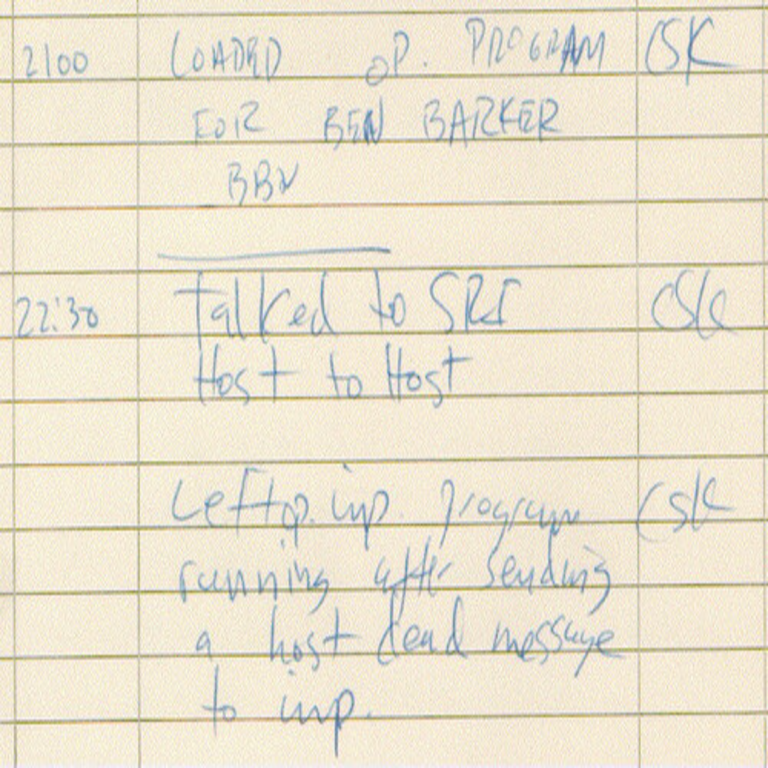 2100 LOADED OP. PROGRAM CSK
FOR BEN BARKER
BBN
22:30 Talked to SRI CSK
Host to Host
Left op. imp. program CSK
running after sending
a host dead message
to imp.